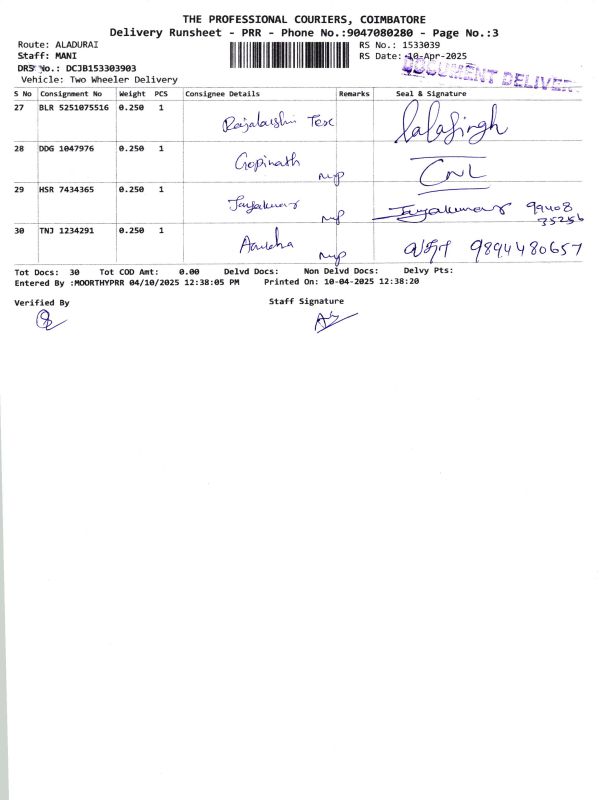 THE PROFESSIONAL COURIERS, COIMBATORE
Delivery Runsheet - PRR - Phone No.:9047080280 - Page No.:3
Route: ALADURAI RS No.: 1533039
Staff: MANI RS Date: 10-Apr-2025
DRS No.: DCJB153303903 DOCUMENT DELIVER
Vehicle: Two Wheeler Delivery
S No Consignment No Weight PCS Consignee Details Remarks Seal & Signature
27 BLR 5251075516 0.250 1 Rajalakshmi Tex
28 DDG 1047976 0.250 1 Gopinath
29 HSR 7434365 0.250 1 Jayakumar Jayakumar 99408 35256
30 TNJ 1234291 0.250 1 9894480657
Tot Docs: 30 Tot COD Amt: 0.00 Delvd Docs: Non Delvd Docs: Delvy Pts:
Entered By :MOORTHYPRR 04/10/2025 12:38:05 PM Printed On: 10-04-2025 12:38:20
Verified By Staff Signature